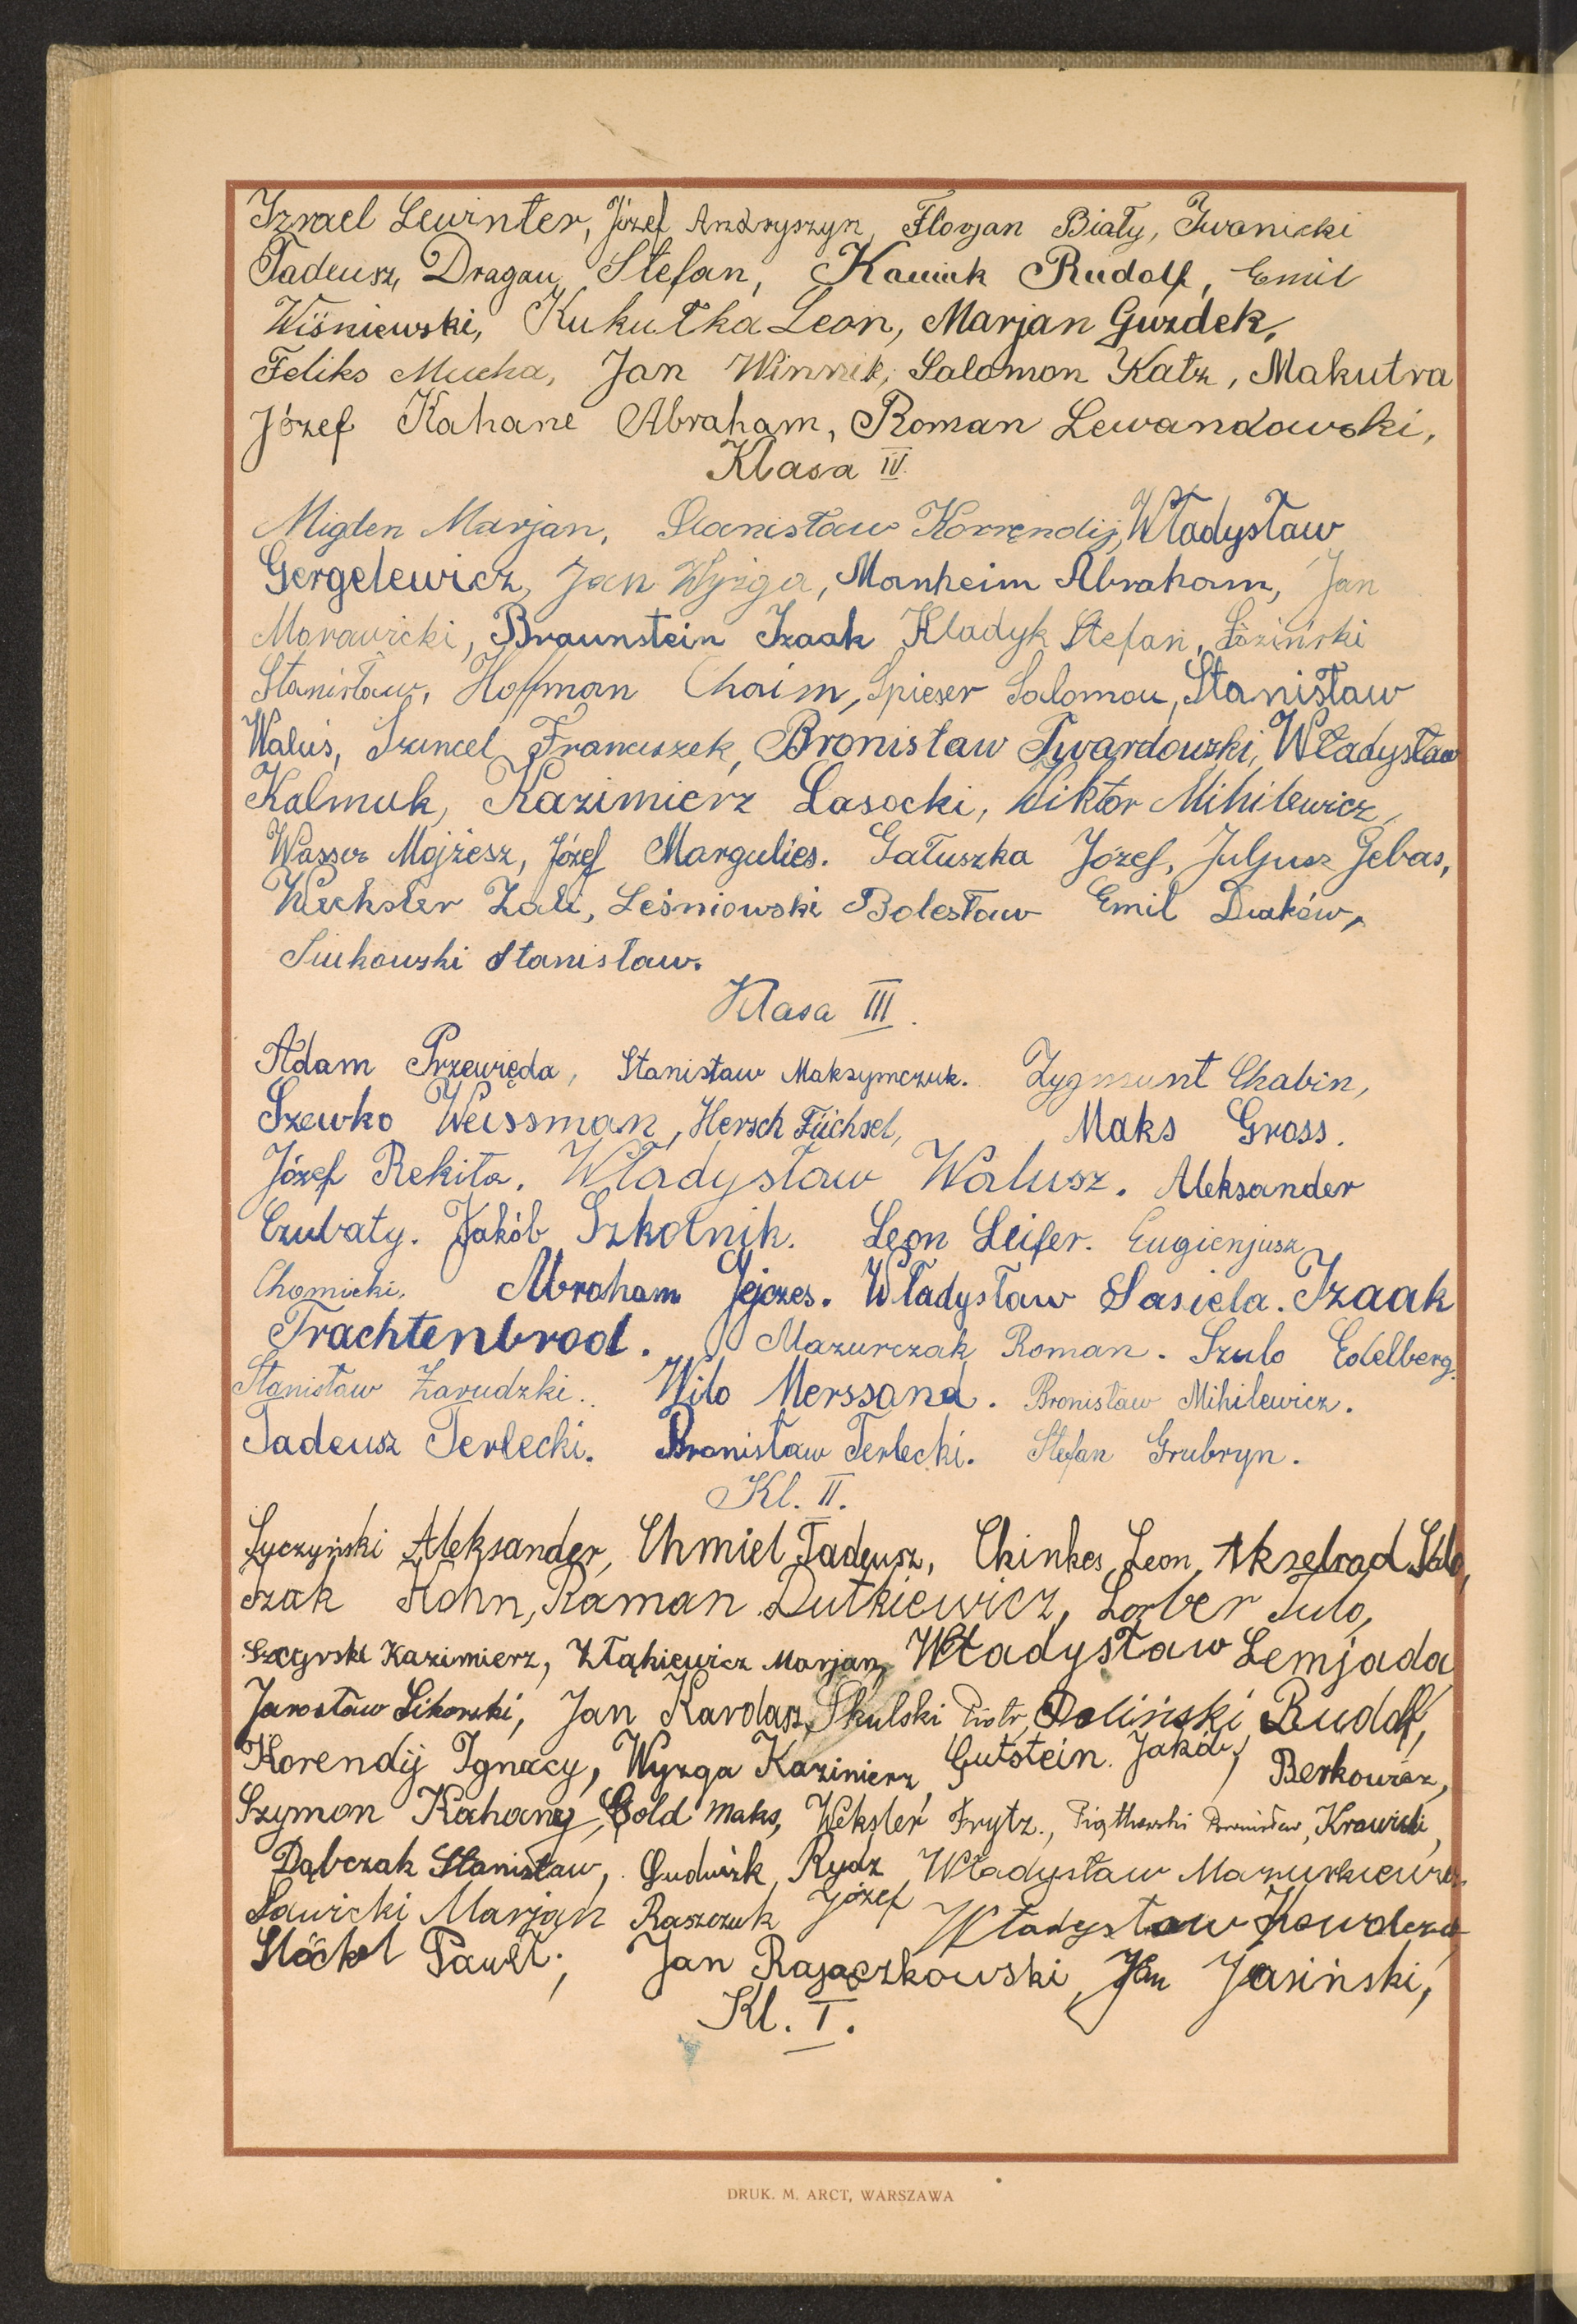 Izrael Lewinter, Józef Andryszyn, Florjan Biały, Iwanicki
Tadeusz, Dragan Stefan, Kaniuk Rudolf, Emil
Wiśniewski, Kukułka Leon, Marjan Guzdek,
Feliks Mucha, Jan Winnik, Salomon Katz, Makutra
Józef Kahane Abraham, Roman Lewandowski,
Klasa IV.
Migden Marjan, Stanisław Korrendij, Władysław
Gergelewicz, Jan Wyzga, Manheim Abraham, Jan
Morawicki, Braunstein Izaak Hladyk Stefan, Łoziński
Stanisław, Hoffman Chaim, Spieser Salomon, Stanisław
Waluś, Szuncel Franciszek, Bronisław Twardowski, Władysław
Kalmuk, Kazimierz Lasocki, Wiktor Mihilewicz,
Wasser Mojżesz, Józef Margulies. Gałuszka Józef, Juljusz Gebas,
Wechsler Zali, Leśniowski Bolesław Emil Diaków,
Siukowski Stanisław.
Klasa III.
Adam Przewięda, Stanisław Maksymczuk. Zygmunt Chabin,
Szewko Weissman, Hersch Füchsel, Maks Gross.
Józef Rekita. Władysław Walusz. Aleksander
Czubaty. Jakób Szkolnik. Leon Leifer. Eugienjusz
Chomicki. Abraham Jejczes. Władysław Sasiela. Izaak
Trachtenbrod. Mazurczak Roman. Szulo Edelberg.
Stanisław Zarudzki. Wilo Merssand. Bronisław Mihilewicz.
Tadeusz Terlecki. Bronisław Terlecki. Stefan Grubryn.
Kl. II.
Łyczyński Aleksander, Chmiel Tadeusz, Chinkes Leon, Akselrad Salo,
Izak Kohn, Roman Dutkiewicz, Lorber Tulo,
Kazimierz, Złąkiewicz Marjan, Władysław Lemjada
Jarosław Sikorski, Jan Kardasz, Skulski Piotr, Doliński Rudolf,
Korendij Ignacy, Wyzga Kazimierz, Gutstein Jakób, Berkowicz,
Szymon Kahane, Gold Maks, Weksler Frytz., Piątkowski Bronisław, Krawicki,
Dąbczak Stanisław, Ludwik Rydz Władysław Mazurkiewicz
Sawicki Marjan Raszczuk Józef Władysław
Stöckel Paweł, Jan Rajaczkowski, Jan Jasiński,
Kl. I.
DRUK. M. ARCT, WARSZAWA